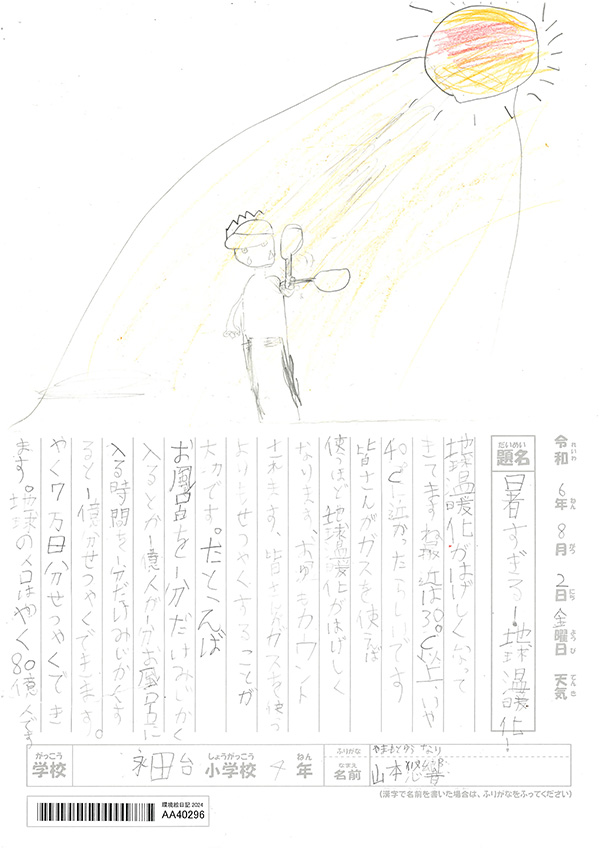 令和 6年 8月 2日 金曜日 天気
れいわ ねん がつ にち ようび てんき
だいめい
題名
暑すぎる！地球温暖化！
地球温暖化がはげしくなって
きてますね最近は38℃以上、いや
40℃に近かったらしいです
皆さんがガスを使えば
使うほど地球温暖化がはげしく
なります、お湯もカウント
されます、皆さんがガスを使う
よりせつやくすることが
大切です。たとえば
お風呂を1分だけみじかく
入るとか1億人が1分お風呂に
入る時間を1分だけみじかくす
ると1億分せつやくできます。
やく7万日分せつやくでき
ます。地球の人口はやく80億人です
がっこう
学校
永田台
しょうがっこう
小学校
4
ねん
年
ふりがな
なまえ
名前
山本
(漢字で名前を書いた場合は、ふりがなをふってください)
環境絵日記 2024
AA40296